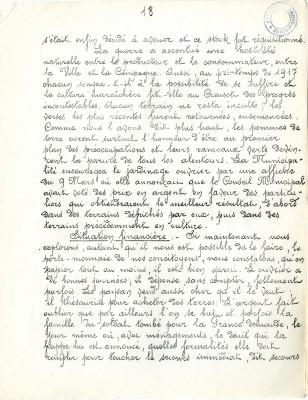 18
s'était enfin décidé à avouer et ce stock fut réquisitionné.
La guerre a accentué une hostilité
naturelle entre le producteur et le consommateur, entre
la Ville et la Campagne. Aussi, au printemps de 1917
chacun songea-t-il à la possibilité de se suffire et
la culture maraîchère fit-elle au Creusot des progrès
incontestables. Aucun terrain ne resta inculte; les
verses les plus récentes furent retournées, ensemencées.
Comme nous l'avons dit plus haut, les pommes de
terre eurent surtout l'honneur d'être au premier
plan des préoccupations et leurs rameaux verts devin-
rent la parure de tous les alentours. La Municipa-
lité encouragea le jardinage ouvrier par une affiche
du 9 Mars où elle annonçait que le Conseil Municipal
avait voté des prix en argent en faveur des particu-
liers qui obtiendraient le meilleur résultat, d'abord
dans des terrains défrichés par eux, puis dans des
terrains précédemment en culture.
Situation financière. - Si maintenant nous
explorons, autant qu'il nous est possible de le faire, le
porte-monnaie de nos concitoyens, nous constatons, qu'en
papier tout au moins, il est bien garni. L'ouvrier a
de bonnes journées; il dépense sans compter, follement
parfois. Le paysan vend aussi cher qu'il le veut;
il thésaurise pour acheter des terres. L'argent fait
oublier que par ailleurs l'on se bat et parfois la
famille du soldat tombé pour la France demande, le
jour même où, avec ménagements, le deuil qui la
frappe lui est annoncé, quelles formalités elle doit
remplir pour toucher le secours immédiat, dit secours